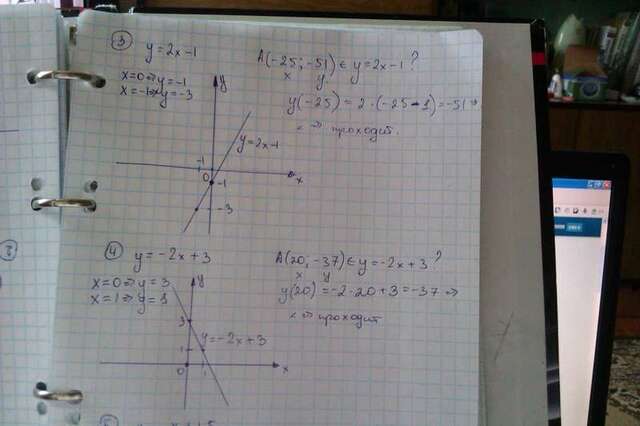 ③ y=2x-1
x=0⇒y=-1
x=-1⇒y=-3
A(-25;-51)∈y=2x-1?
x y
y(-25)=2·(-25-1)=-51⇒
⇒ проходит.
y
y=2x-1
-1
0
-1
x
-3
④ y=-2x+3
x=0⇒y=3
x=1⇒y=1
A(20;-37)∈y=-2x+3?
x y
y(20)=-2·20+3=-37⇒
⇒ проходит
y
3
y=-2x+3
1
0
1
x